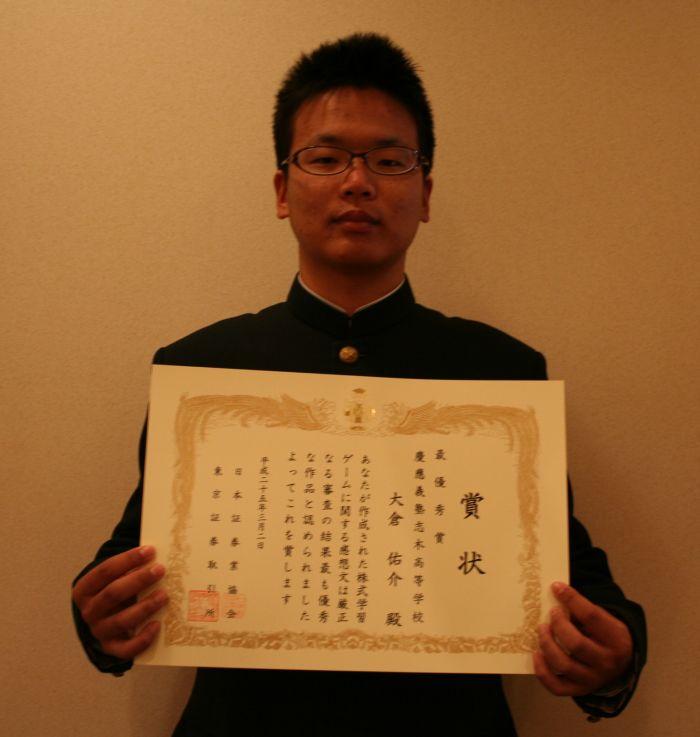 賞状
最優秀賞
慶應義塾志木高等学校
大倉 佑介 殿
あなたが作成された株式学習
ゲームに関する感想文は厳正
なる審査の結果最も優秀
な作品と認められました
よってこれを賞します
平成二十五年三月二日
日本証券業協会
東京証券取引所